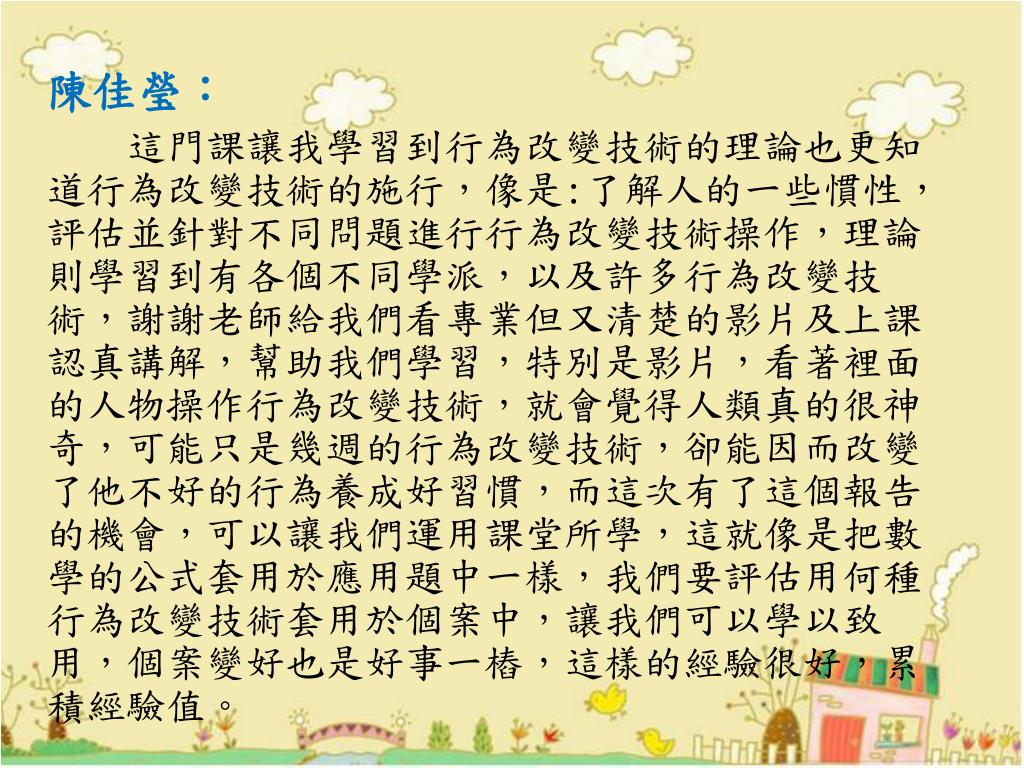 陳佳瑩：
這門課讓我學習到行為改變技術的理論也更知
道行為改變技術的施行，像是:了解人的一些慣性，
評估並針對不同問題進行行為改變技術操作，理論
則學習到有各個不同學派，以及許多行為改變技
術，謝謝老師給我們看專業但又清楚的影片及上課
認真講解，幫助我們學習，特別是影片，看著裡面
的人物操作行為改變技術，就會覺得人類真的很神
奇，可能只是幾週的行為改變技術，卻能因而改變
了他不好的行為養成好習慣，而這次有了這個報告
的機會，可以讓我們運用課堂所學，這就像是把數
學的公式套用於應用題中一樣，我們要評估用何種
行為改變技術套用於個案中，讓我們可以學以致
用，個案變好也是好事一樁，這樣的經驗很好，累
積經驗值。